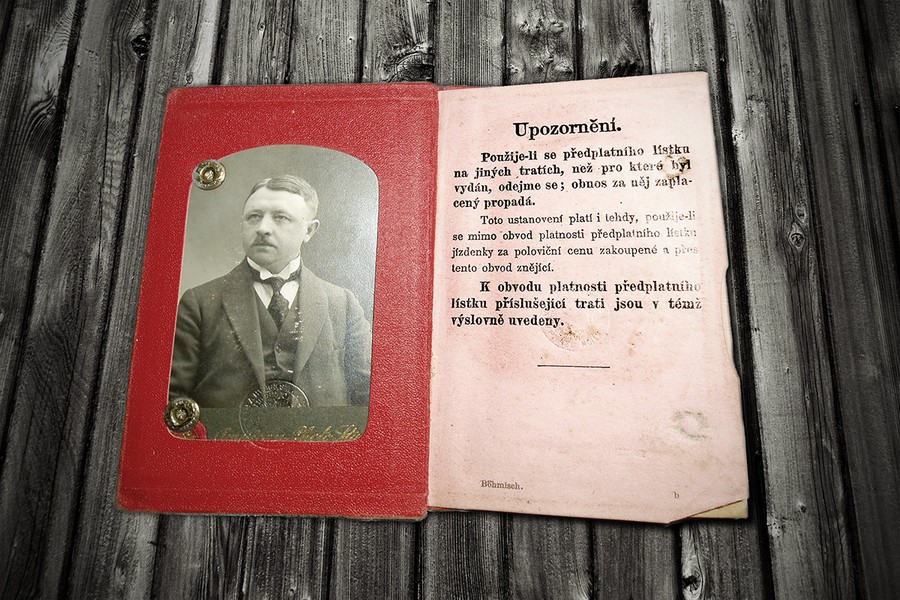 Upozornění.
Použije-li se předplatního lístku
na jiných tratích, než pro které byl
vydán, odejme se; obnos za něj zapla-
cený propadá.
Toto ustanovení platí i tehdy, použije-li
se mimo obvod platnosti předplatního lístku
jízdenky za poloviční cenu zakoupené a přes
tento obvod znějící.
K obvodu platnosti předplatního
lístku příslušející trati jsou v témž
výslovně uvedeny.
Böhmisch.
b